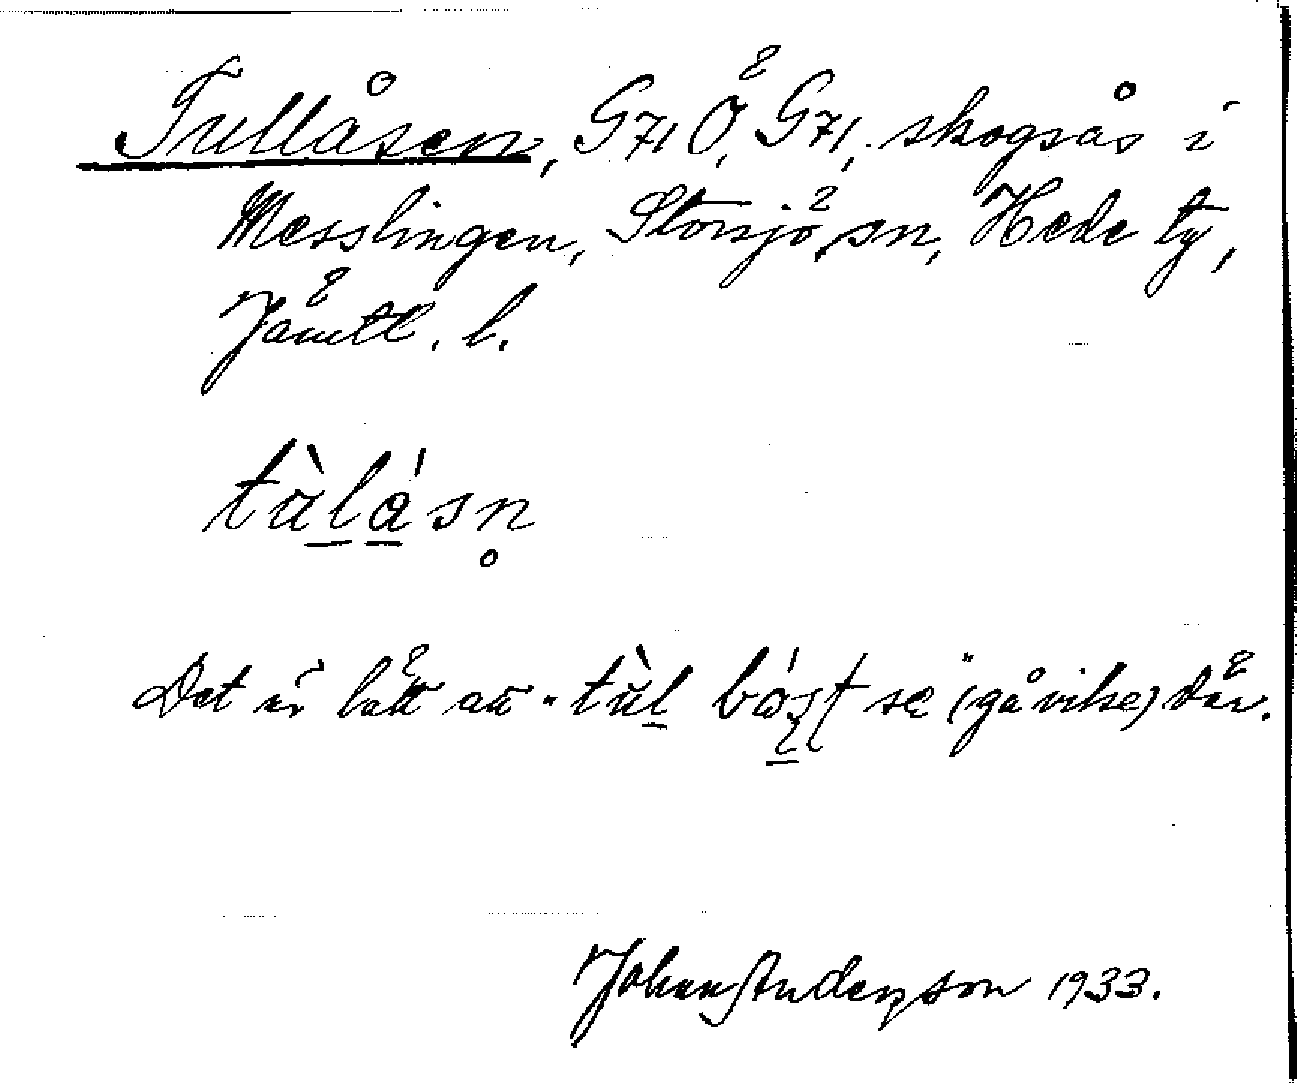 Tullåsen, G71 Ö, G71, skogsås i
Messlingen, Storsjö sn, Hede tg,
Jämtl. l.
tùlásn̥
Det är lätt att "tùl bóst se" (gå vilse) där.
Johan Anderzson 1933.